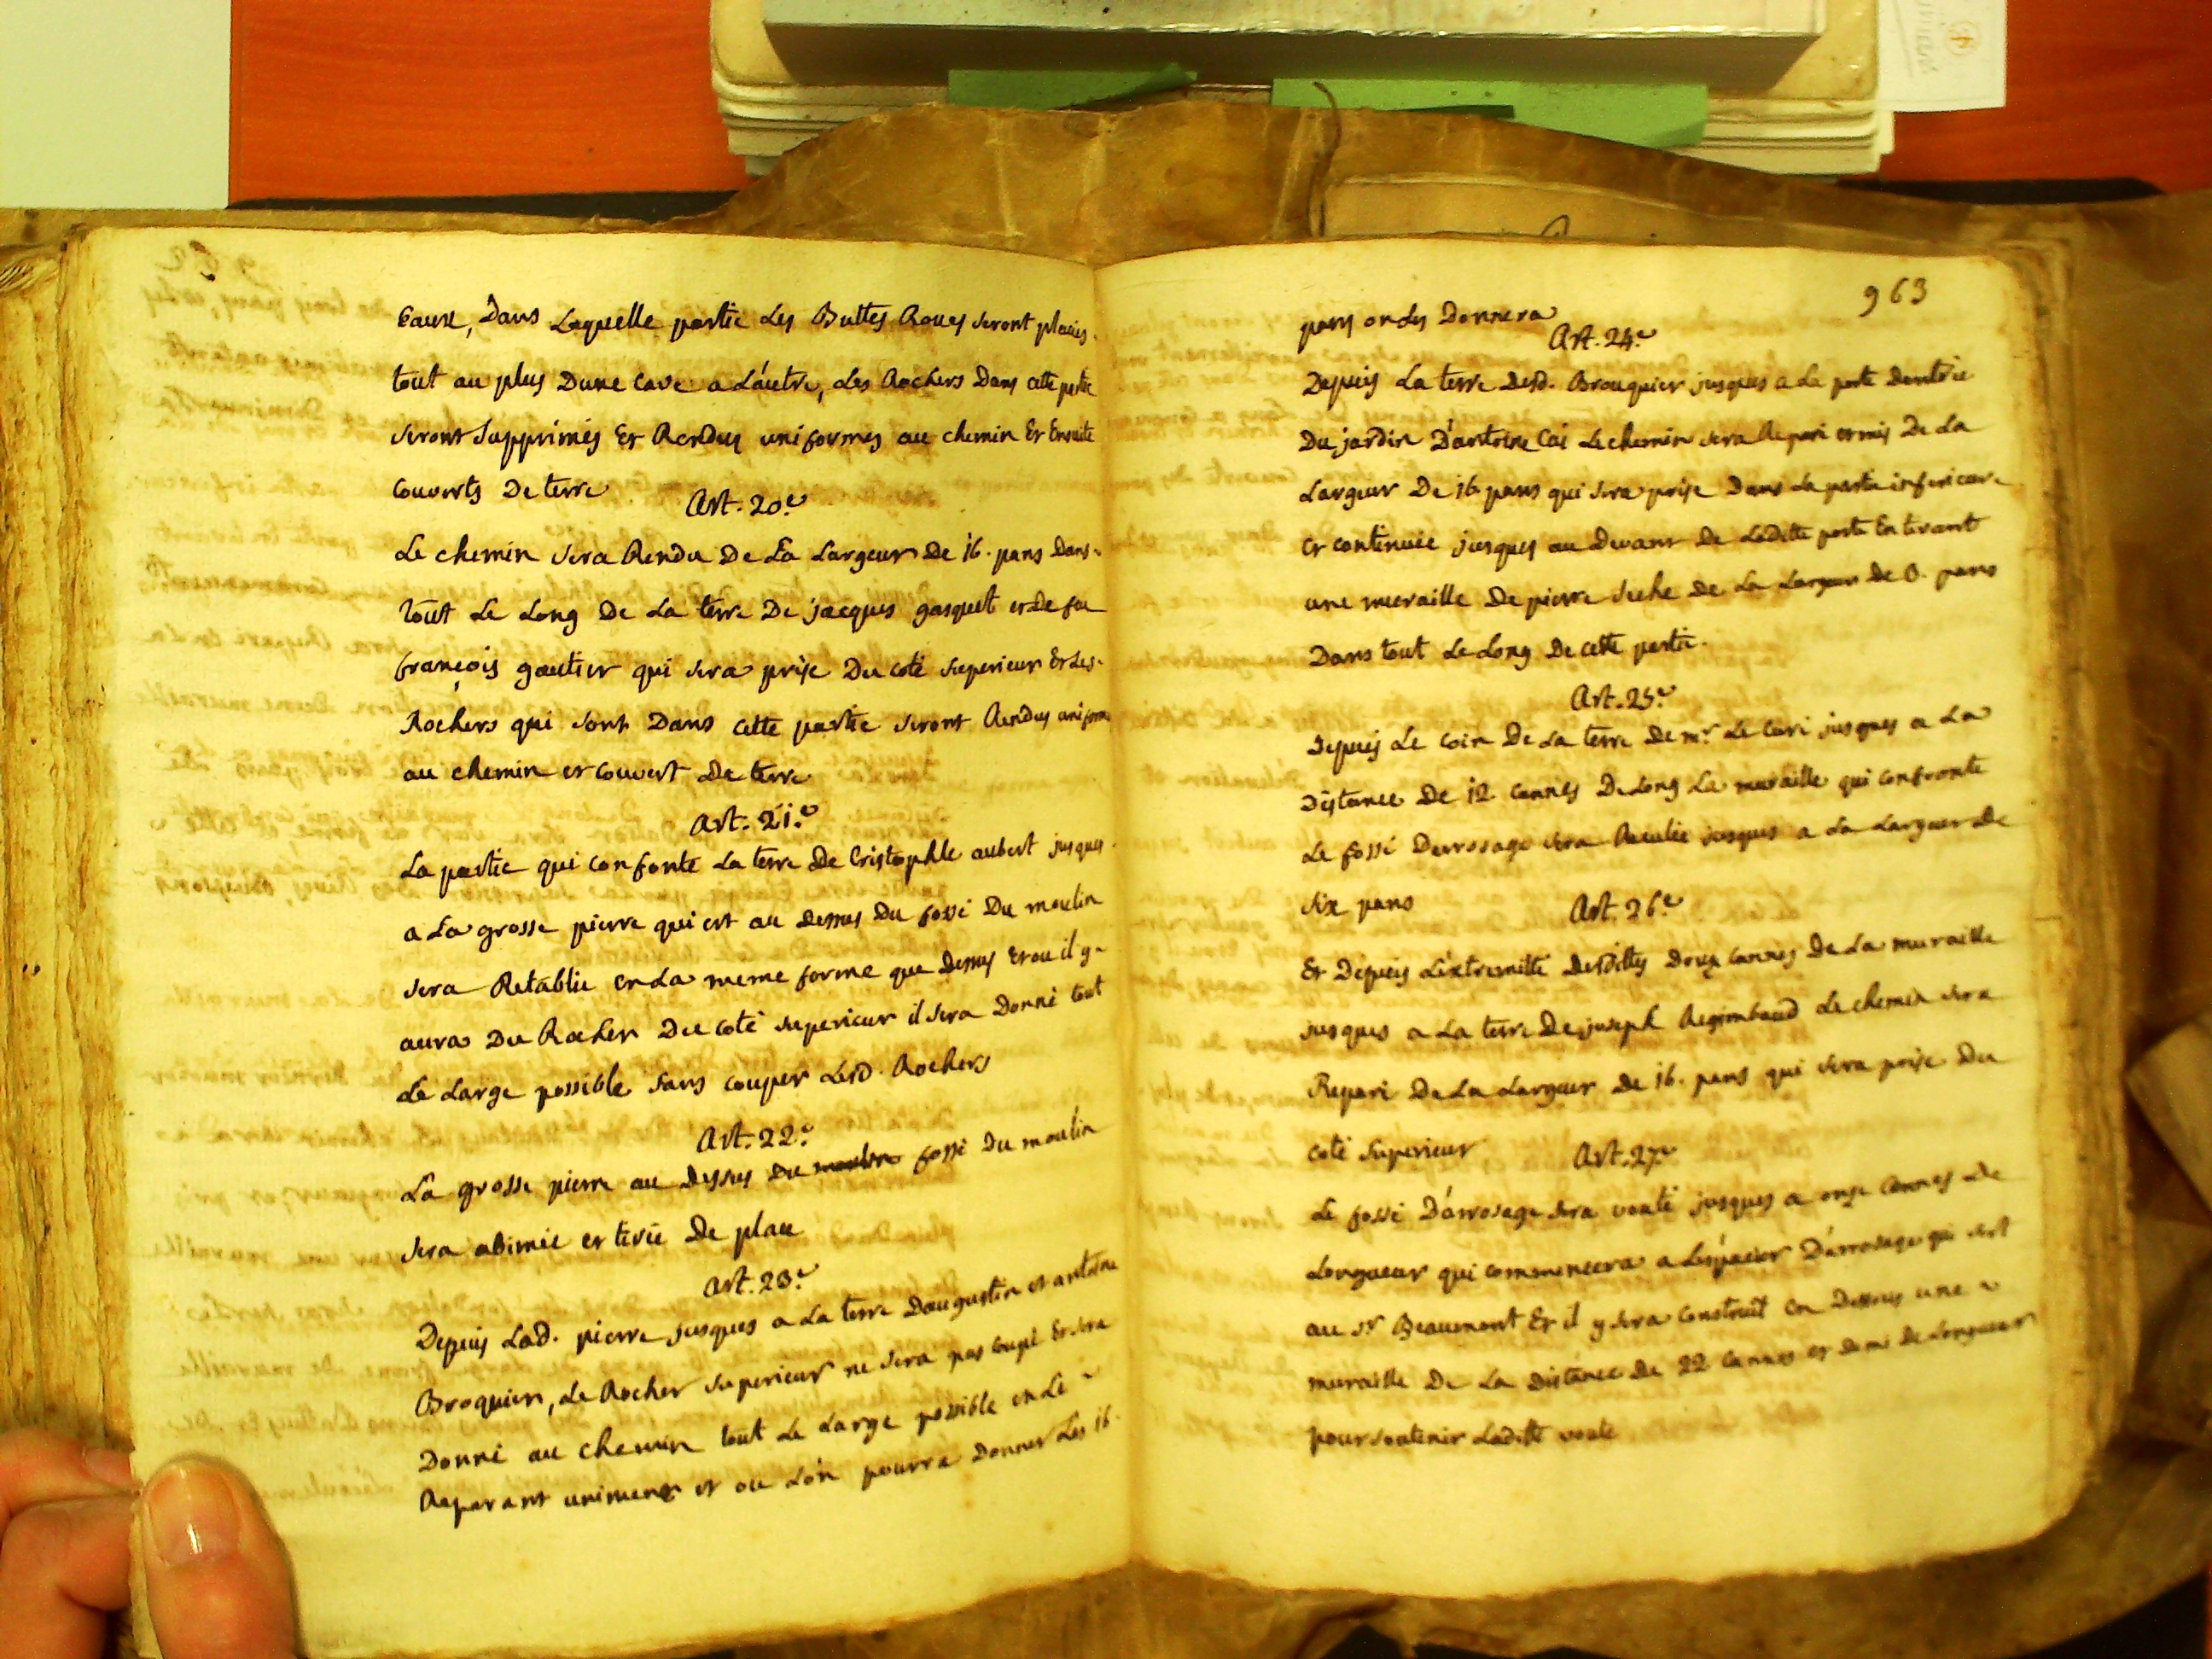 Eaux, Dans Laquelle partie Les Buttes Roues seront placées
tout au plus Dune Cave a Láutre, Les Rochers Dans cette partie
seront Supprimés Et Rendus uniformes au chemin Et Ensuite
Couverts De terre
Art. 20.e
Le chemin sera Rendu De La Largeur De 16. pans Dans
tout Le Long De La terre De jacques gasquet et de feu
françois gautier qui sera prise Du coté superieur Et Les
Rochers qui sont Dans cette partie seront Rendus uniformes
au chemin et couvert De terre
Art. 21.e
La partie qui confonte La terre De Cristophle aubert jusques
a La grosse pierre qui est au Dessus Du fossé Du moulin
sera Retablie en La meme forme que Dessus Et ou il y
aura Du Rocher Du coté superieur il sera Donné tout
Le Large possible sans couper Lesd. Rochers
Art. 22.e
La grosse pierre au Dessus Du moulin fossé Du moulin
sera abimée et tirée De place
Art. 23.e
Depuis Lad. pierre jusques a La terre Daugustin et antoine
Broquier, Le Rocher superieur ne sera pas coupé Et sera
Donné au chemin tout Le Large possible en Le
Reparant uniment et ou Lón pourra Donner Les 16.
963
pans on Les Donnera
Art. 24.e
Depuis La terre Desd. Brouquier jusques a La porte Dentrée
Du jardin D'antoine Cai Le chemin sera Reparé et mis De La
Largeur De 16. pans qui sera prise Dans La partie inferieure
et continuée jusques au Devant De Laditte porte En tirant
une muraille De pierre seche de La Largeur de 3. pans
Dans tout Le Long De cette partie.
Art. 25.e
Depuis Le coin De La terre De mr. Le Curé jusques a La
Distance De 12 cannes De Long La muraille qui confronte
Le fossé Darrosage sera Reculée jusques a La Largeur De
six pans
Art. 26.e
Et Depuis Léxtremitté Desdittes Douze Cannes De La muraille
jusques a La terre De joseph Regimbaud Le chemin sera
Reparé De La Largeur de 16. pans qui sera prise Du
coté superieur
Art. 27.e
Le fossé D'arrosage sera vouté jusques a onze Cannes De
Longueur qui commencera a Léspacier D'arrosage qui sert
au sr. Beaumont Et il y sera Construit En Dessous une
muraille De La Distance De 22 Cannes et demi de Longueur
pour soutenir Laditte voute